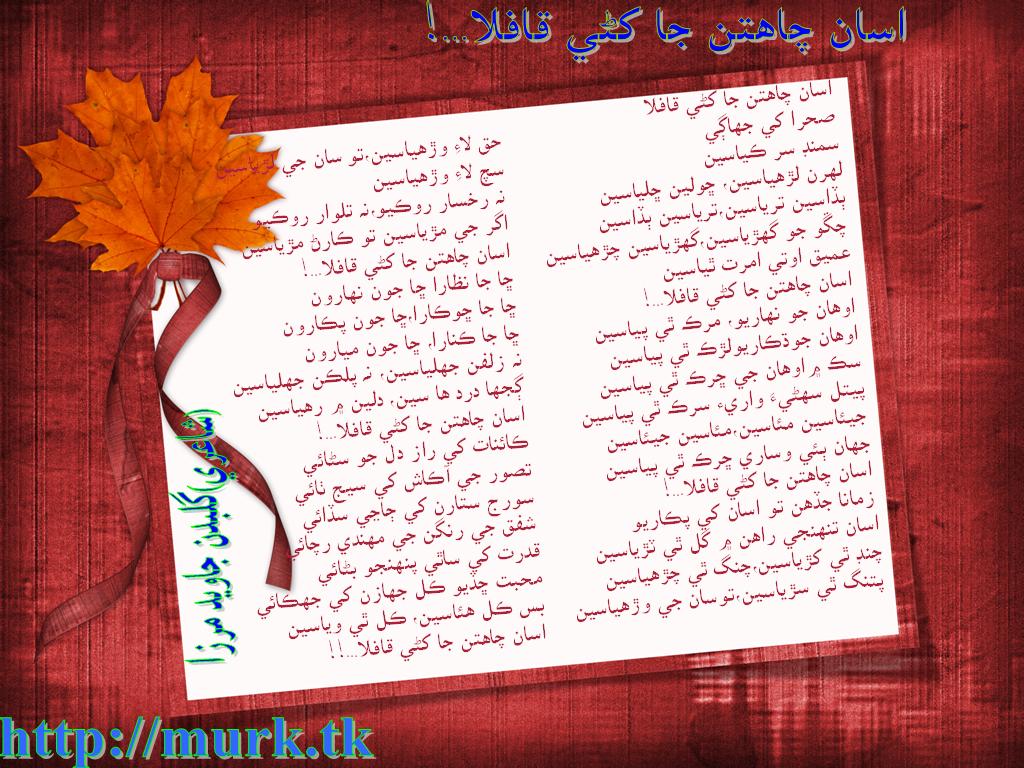 اسان چاهتن جا کڻي قافلا...!
اسان چاهتن جا کڻي قافلا
صحرا کي جهاڳي
سمنڊ سر ڪياسين
لهرن لڙهياسين، ڇولين ڇلياسين
ٻڏاسين ترياسين،ترياسين ٻڏاسين
چڱو جو گهڙياسين،گهڙياسين چڙهياسين
عميق اوتي امرت ٿياسين
اسان چاهتن جا کڻي قافلا...!
اوهان جو نهاريو، مرڪ ٿي پياسين
اوهان جوڌڪاريولڙڪ ٿي پياسين
سڪ ۾اوهان جي ڇرڪ ٿي پياسين
پيتل سهڻيءَ واريءَ سرڪ ٿي پياسين
جيئاسين مئاسين،مئاسين جيئاسين
جهان ٻئي وساري ڇرڪ ٿي پياسين
اسان چاهتن جا کڻي قافلا...!
زمانا جڏهن تو اسان کي پڪاريو
اسان تنهنجي راهن ۾ گل ٿي ٽڙياسين
چنڊ ٿي کڙياسين،چنگ ٿي چڙهياسين
پتنگ ٿي سڙياسين،توسان جي وڙهياسين
حق لاءِ وڙهياسين،تو سان جي لڙياسين
سچ لاءِ وڙهياسين
نہ رخسار روڪيو،نہ تلوار روڪيو
اگر جي مڙياسين تو ڪارڻ مڙياسين
اسان چاهتن جا کڻي قافلا...!
ڇا جا نظارا ڇا جون نهارون
ڇا جا ڇوڪارا،ڇا جون پڪارون
ڇا جا ڪنارا، ڇا جون ميارون
نہ زلفن جهلياسين، نہ پلڪن جهلياسين
ڳجها درد ها سين، دلين ۾ رهياسين
اسان چاهتن جا کڻي قافلا...!
ڪائنات کي راز دل جو سڻائي
تصور جي آڪاش کي سيج ٺائي
سورج ستارن کي ڄاڃي سڏائي
شفق جي رنگن جي مهندي رچائي
قدرت کي ساٿي پنهنجو بڻائي
محبت ڇڏيو ڪل جهازن کي جهڪائي
بس ڪل هئاسين، ڪل ٿي وياسين
اسان چاهتن جا کڻي قافلا...!!
(شاعري) گلبدن جاويد مرزا
http://murk.tk